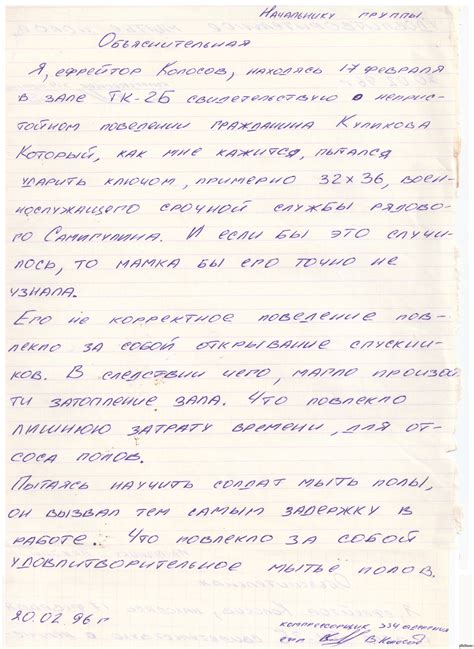 Начальнику группы.
Объяснительная
Я, ефрейтор Колосов, находясь 17 февраля
в зале ТК-2Б свидетельствую о неприс-
тойном поведении гражданина Куликова
Который, как мне кажится, пытался
ударить ключом, примерно 32х36, воен-
нослужащего срочной службы рядово-
го Самигулина. И если бы это случи-
лось, то мамка бы его точно не
узнала.
Его не корректное поведение пов-
лекло за собой открывание спускни-
ков. В следствии чего, магло произой
ти затопление зала. Что повлекло
лишнюю затрату времени, для от-
соса полов.
Пытаясь научить солдат мыть полы,
он вызвал тем самым задержку в
работе. Что повлекло за собой
удовлитворительное мытье полов.
20.02.96г
компрессорщик 334 отделения
В.Колосов